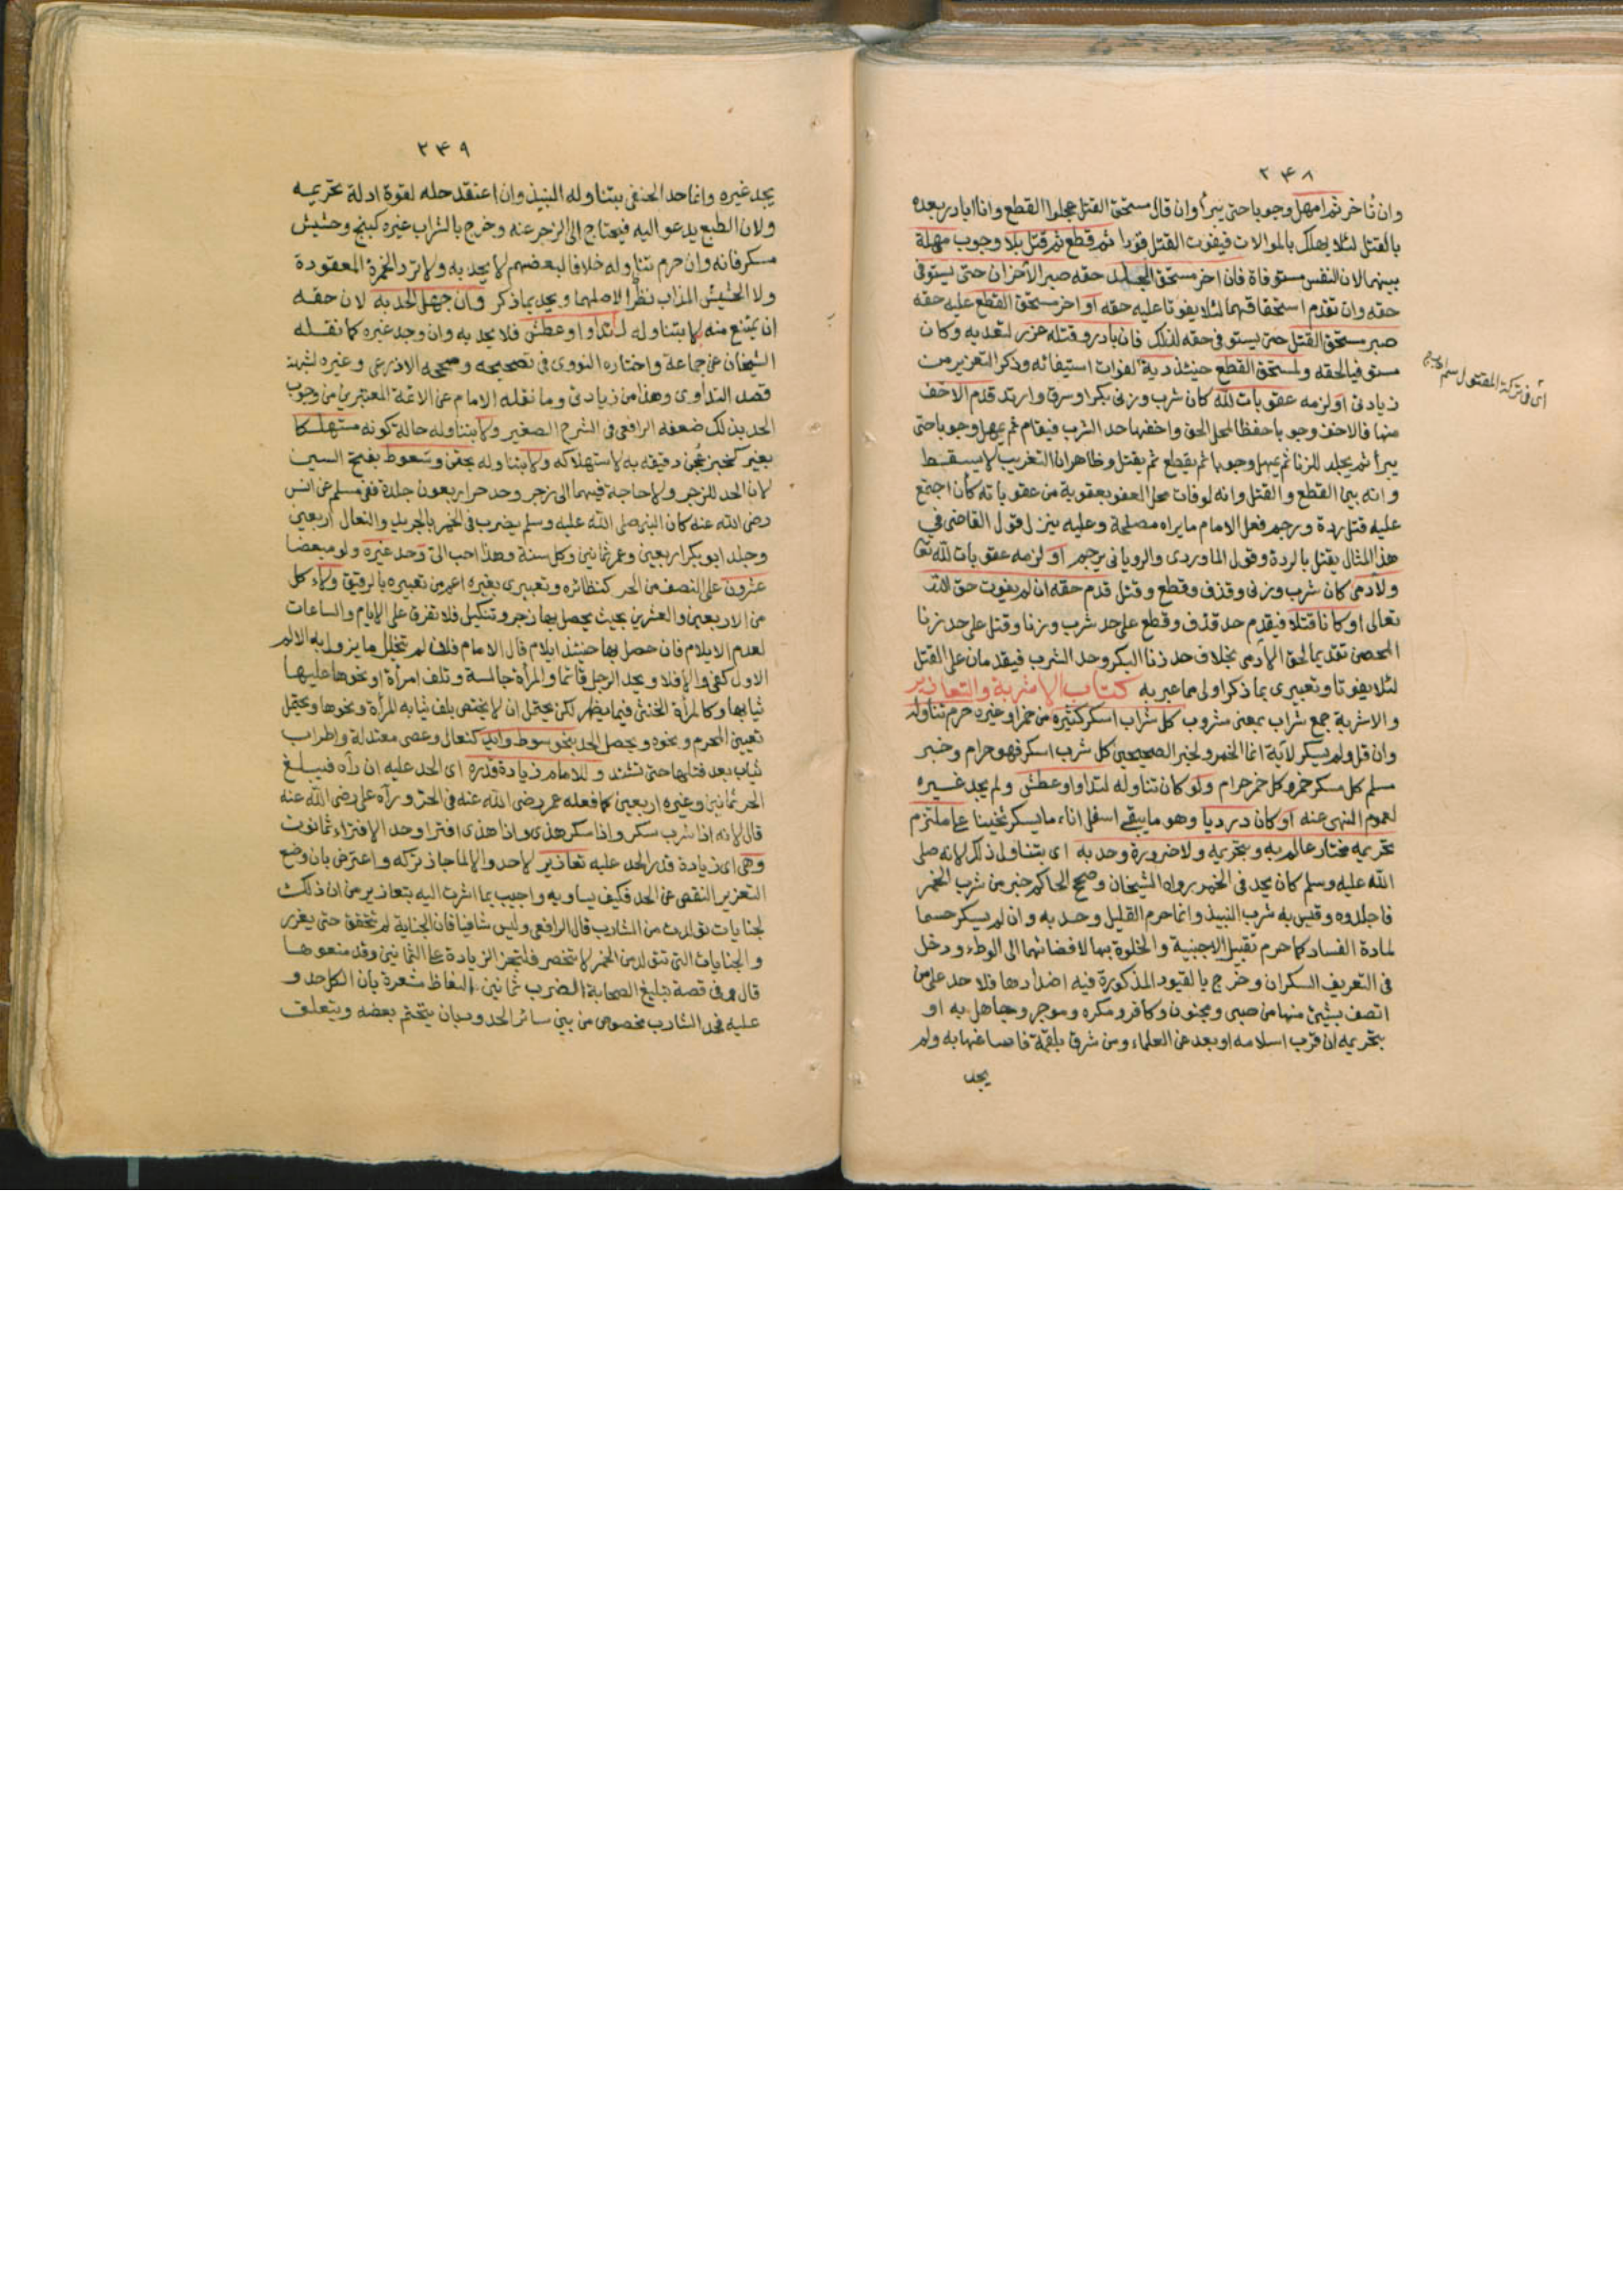 ٢٤٨
وان تأخر ثم امهل وجوبا حتى يبرأ وان قال مستحق القتل عجلوا القطع وانا ابادر بعده
بالقتل لئلا يهلك بالموالات فيفوت القتل قودا ثم قطع ثم قتل بلا وجوب مهلة
بينهما لان النفس مستوفاة فان اخر مستحق الجلد حقه صبر الآخران حتى يستوفى
حقه وان تقدم استحقاقهما لئلا يفوتا عليه حقه او اخر مستحق القطع عليه حقه
صبر مستحق القتل حتى يستوفى حقه لذلك فان بادر وقتله عزر لتعديه وكان
مستوفيا لحقه ولمستحق القطع حينئذ دية لفوات استيفائه وذكر التعزير من
زيادتى او لزمه عقوبات لله كان شرب وزنى بكرا وسرق وارتد قدم الاخف
منها فالاخف وجوبا حفظا لمحل الحق واخفها حد الشرب فيقام ثم يمهل وجوبا حتى
يبرأ ثم يجلد للزنا ثم يمهل وجوبا ثم يقطع ثم يقتل وظاهر ان التغريب لا يسقط
وانه بين القطع والقتل وانه لو فات محل العفو بعقوبة من عقوباته كأن اجتمع
عليه قتل ردة ورجم فعل الامام ما يراه مصلحة وعليه ينزل قول القاضى في
هذا المثال يقتل بالردة وقول الماوردى والرويانى يرجم او لزمه عقوبات لله تعا
ولآدمى كان شرب وزنى وقذف وقطع وقتل قدم حقه ان لم يفوت حق الله
تعالى او كانا قتلا فيقدم حد قذف وقطع على حد شرب وزنا وقتل على حد زنا
المحصن تقديما لحق الآدمى بخلاف حد زنا البكر وحد الشرب فيقدمان على القتل
لئلا يفوتا وتعبيرى بما ذكر اولى مما عبر به كتاب الاشربة والتعازير
والاشربة جمع شراب بمعنى مشروب كل شراب اسكر كثيره من خمر او غيره حرم تناوله
وان قل ولم يسكر لآية انما الخمر ولخبر الصحيحين كل شرب اسكر فهو حرام وخبر
مسلم كل مسكر خمر وكل خمر حرام ولو كان تناوله لتداو او عطش ولم يجد غيره
لعموم النهى عنه او كان درديا وهو ما يبقى اسفل اناء ما يسكر ثخينا على ملتزم
تحريمه مختار عالم به وبتحريمه ولا ضرورة وحد به اى بتناول ذلك لانه صلى
الله عليه وسلم كان يحد فى الخمر رواه الشيخان وصحح الحاكم خبر من شرب الخمر
فاجلدوه وقيس به شرب النبيذ وانما حرم القليل وحد به وان لم يسكر حسما
لمادة الفساد كما حرم تقبيل الاجنبية والخلوة بها لافضائهما الى الوطء ودخل
فى التعريف السكران وخرج بالقيود المذكورة فيه اضدادها فلا حد على من
اتصف بشيئ منها من صبى ومجنون وكافر ومكره وموجر وجاهل به او
بتحريمه ان قرب اسلامه او بعد عن العلماء ومن شرق بلقمة فاساغها به ولم
يجد
اى فى تركة المقتول
٢٤٩
يجد غيره وانما حد الحنفى بتناوله النبيذ وان اعتقد حله لقوة ادلة تحريمه
ولان الطبع يدعو اليه فيحتاج الى الزجر عنه وخرج بالشراب غيره كبنج وحشيش
مسكر فانه وان حرم تناوله خلافا لبعضهم لا يحد به ولا ترد الخمرة المعقودة
ولا الحشيش المذاب نظرا لاصلهما ويحد بما ذكر وان جهل الحد به لان حقه
ان يمتنع منه لا بتناوله لتداو او عطش فلا يحد به وان وجد غيره كما نقله
الشيخان عن جماعة واختاره النووى فى تصحيحه وصححه الاذرعى وغيره لشبهة
قصد التداوى وهذا من زيادتى وما نقله الامام عن الائمة المعتبرين من وجوب
الحد بذلك ضعفه الرافعى فى الشرح الصغير ولا بتناوله حالة كونه مستهلكا
بغير كخبز عجن دقيقه به لاستهلاكه ولا بتناوله بحقن وسعوط بفتح السين
لان الحد للزجر ولا حاجة فيهما الى زجر وحد حر اربعون جلدة ففى مسلم عن انس
رضى الله عنه كان النبى صلى الله عليه وسلم يضرب فى الخمر بالجريد والنعال اربعين
وجلد ابو بكر اربعين وعمر ثمانين وكل سنة وهذا احب الى وحد غيره ولو مبعضا
عشرون على النصف من الحر كنظائره وتعبيرى بغيره اعم من تعبيره بالرقيق ولاء كل
من الاربعين والعشرين بحيث يحصل بها زجر وتنكيل فلا تفرق على الايام والساعات
لعدم الايلام فان حصل بها حينئذ ايلام قال الامام فان لم يتخلل ما يزول به الالم
الاول كفى والا فلا ويحد الرجل قائما والمرأة جالسة وتلف امرأة او نحوها عليها
ثيابها وكالمرأة الخنثى فيما يظهر لكن يحتمل ان لا يختص بلف ثيابه المرأة ونحوها ويحتمل
تعيين المحرم ونحوه ويحصل الحد بنحو سوط وايد كنعال وعصى معتدلة واطراف
ثياب بعد فتلها حتى تشتد وللامام زيادة قدره اى الحد عليه ان رآه فيبلغ
الحر ثمانين وغيره اربعين كما فعله عمر رضى الله عنه فى الحر ورآه على رضى الله عنه
قال لانه اذا شرب سكر واذا سكر هذى واذا هذى افترا وحد الافتراء ثمانون
وهى اى زيادة قدر الحد عليه تعازير لا حد والا لما جاز تركه واعترض بان وضع
التعزير النقص عن الحد فكيف يساويه واجيب بما اشرت اليه بتعازير من ان ذلك
لجنايات تولدت من الشارب قال الرافعى وليس شافيا فان الجناية لم تتحقق حتى يعزر
والجنايات التى تتولد من الخمر لا تنحصر فلتجز الزيادة على الثمانين وقد منعوها
قال وفى قصة تبليغ الصحابة الضرب ثمانين الفاظ مشعرة بأن الكل حد و
عليه فحد الشارب مخصوص من بين سائر الحدود بان يتحتم بعضه ويتعلق